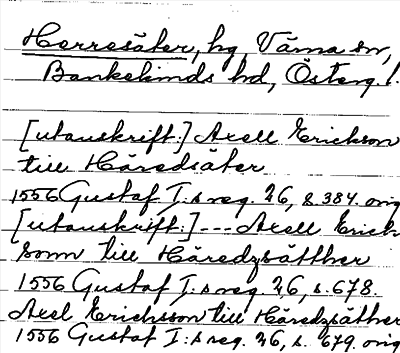 Herresäter, hg, Värna sn,
Bankekinds hd, Österg. l.
[utanskrift:] Axell Erickson
till Häredsäter
1556 Gustaf I:s reg. 26, s. 384. orig
[utanskrift:] --- Axell Erich-
sonn till Häredzsätther
1556 Gustaf I:s reg. 26, s. 678.
Axel Erichsson till Häredzsätther
1556 Gustaf I:s reg. 26, s. 679. orig